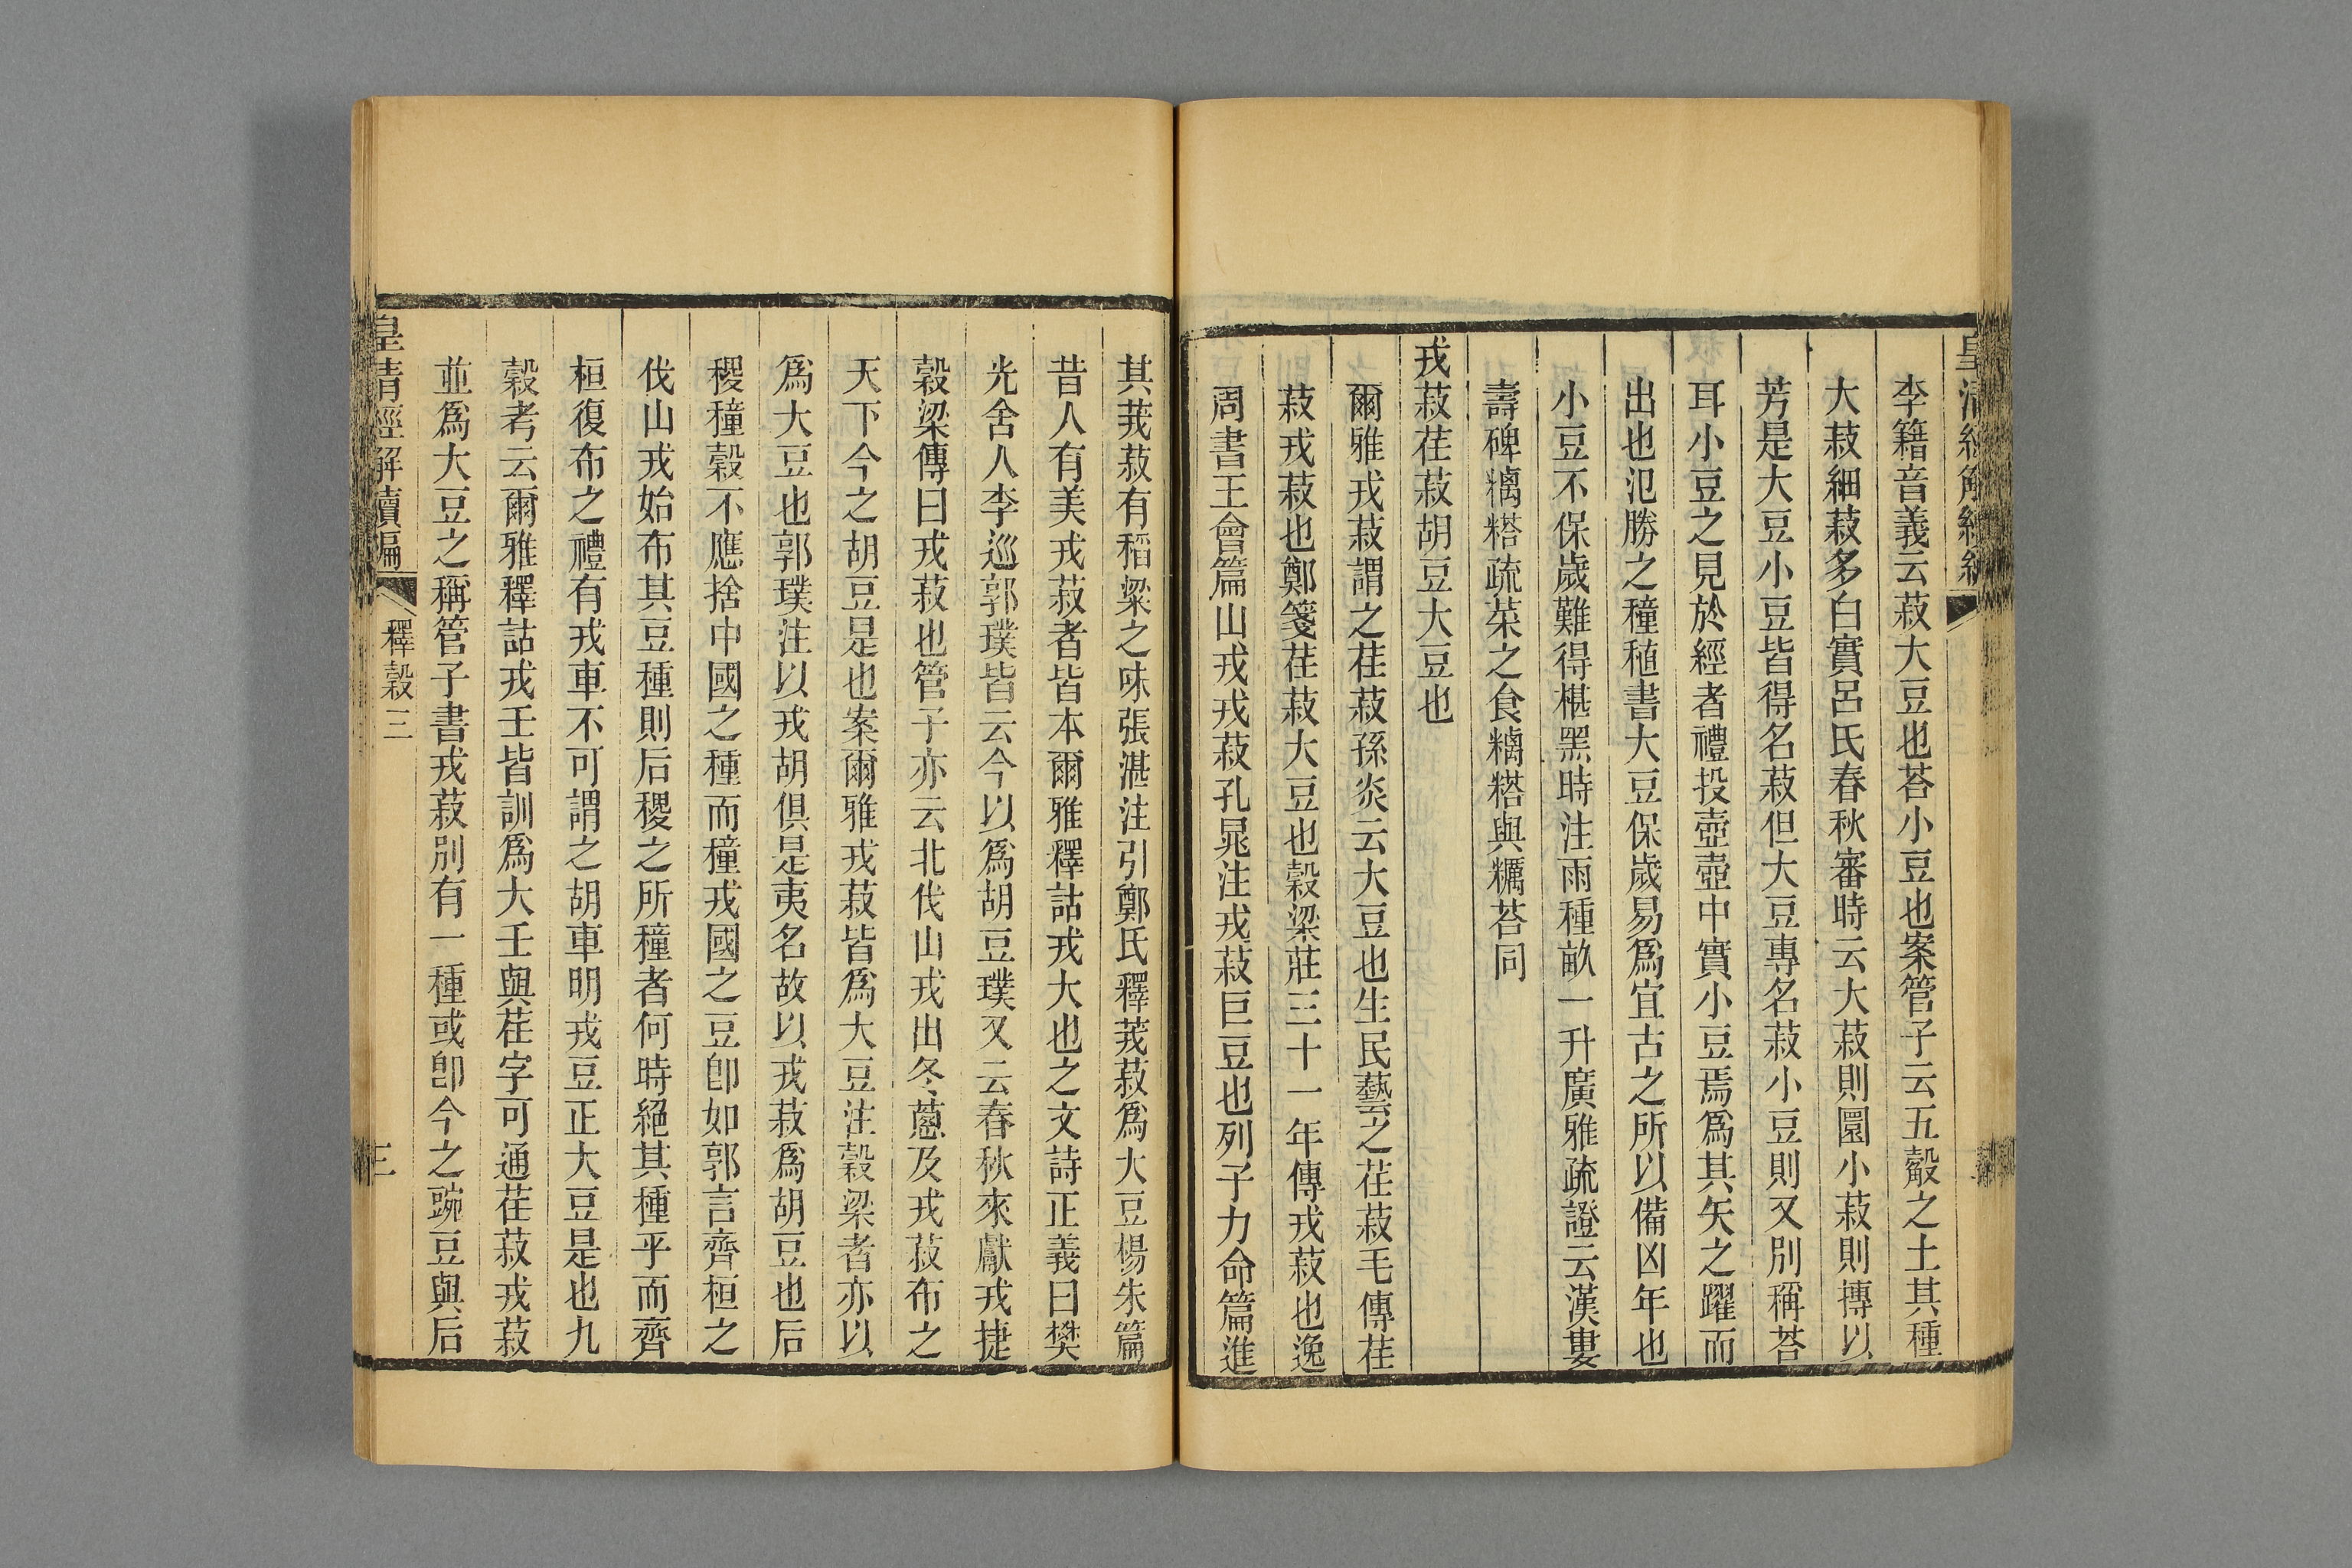 李籍音義云菽大豆也荅小豆也案管子云五觳之土其種
大菽細菽多白實呂氏春秋審時云大菽則圜小菽則摶以
芳是大豆小豆皆得名菽但大豆專名菽小豆則又別稱荅
耳小豆之見於經者禮投壺壺中實小豆焉爲其矢之躍而
出也氾勝之穜稙書大豆保歲易爲宜古之所以備凶年也
小豆不保歲難得椹黑時注雨種畝一升廣雅疏證云漢婁
壽碑糲荅疏菜之食與糲荅同
戎菽荏菽胡豆大豆也
爾雅戎菽謂之荏菽孫炎云大豆也生民藝之荏菽毛傳荏
菽戎菽也鄭箋荏菽大豆也穀梁莊三十一年傳戎菽也逸
周書王會篇山戎戎菽孔晁注戎菽巨豆也列子力命篇進
其茙菽有稻粱之味張湛注引鄭氏釋茙菽爲大豆楊朱篇
昔人有美戎菽者皆本爾雅釋詁戎大也之文詩正義曰樊
光舍人李巡郭璞皆云今以爲胡豆璞又云春秋來獻戎捷
穀梁傳曰戎菽也管子亦云北伐山戎出冬蔥及戎菽布之
天下今之胡豆是也案爾雅戎菽皆爲大豆注穀梁者亦以
爲大豆也郭璞注以戎胡俱是夷名故以戎菽爲胡豆也后
稷穜穀不應捨中國之種而穜戎國之豆卽如郭言齊桓之
伐山戎始布其豆種則后稷之所穜者何時絕其種乎而齊
桓復布之禮有戎車不可謂之胡車明戎豆正大豆是也九
穀考云爾雅釋詁戎壬皆訓爲大壬與荏字可通荏菽戎菽
並爲大豆之稱管子書戎菽別有一種或卽今之豌豆與后
皇清經解續編
釋穀三
三